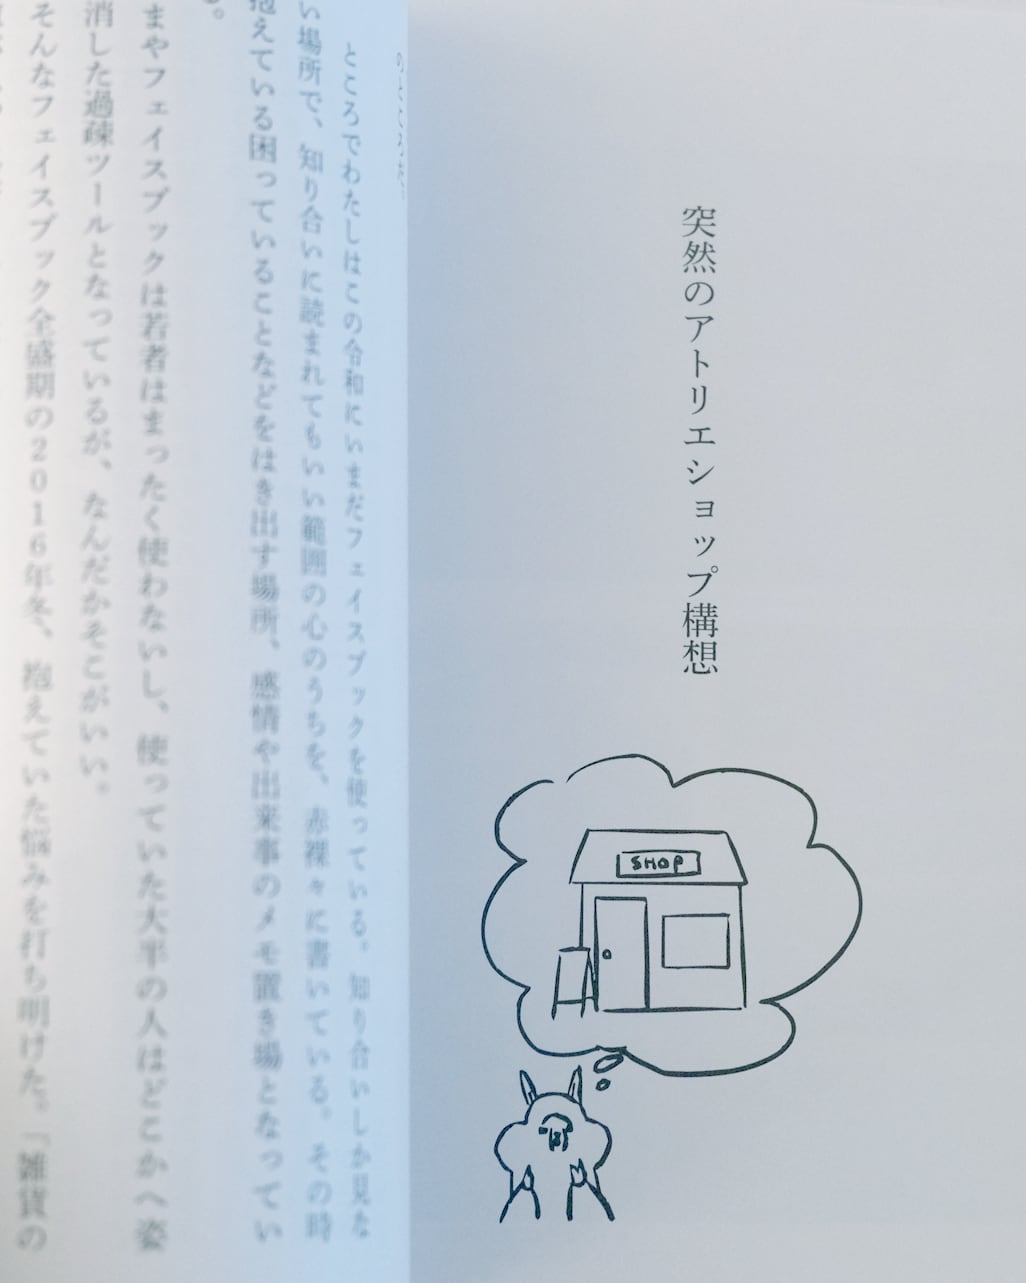 突然のアトリエショップ構想
SHOP
ところでわたしはこの令和にいまだフェイスブックを使っている。知り合いしか見な
い場所で、知り合いに読まれてもいい範囲の心のうちを、赤裸々に書いている。その時
抱えている困っていることなどをはき出す場所、感情や出来事のメモ置き場となってい
る。
まやフェイスブックは若者はまったく使わないし、使っていた大半の人はどこかへ姿
消した過疎ツールとなっているが、なんだかそこがいい。
そんなフェイスブック全盛期の2016年冬、抱えていた悩みを打ち明けた。「雑貨の